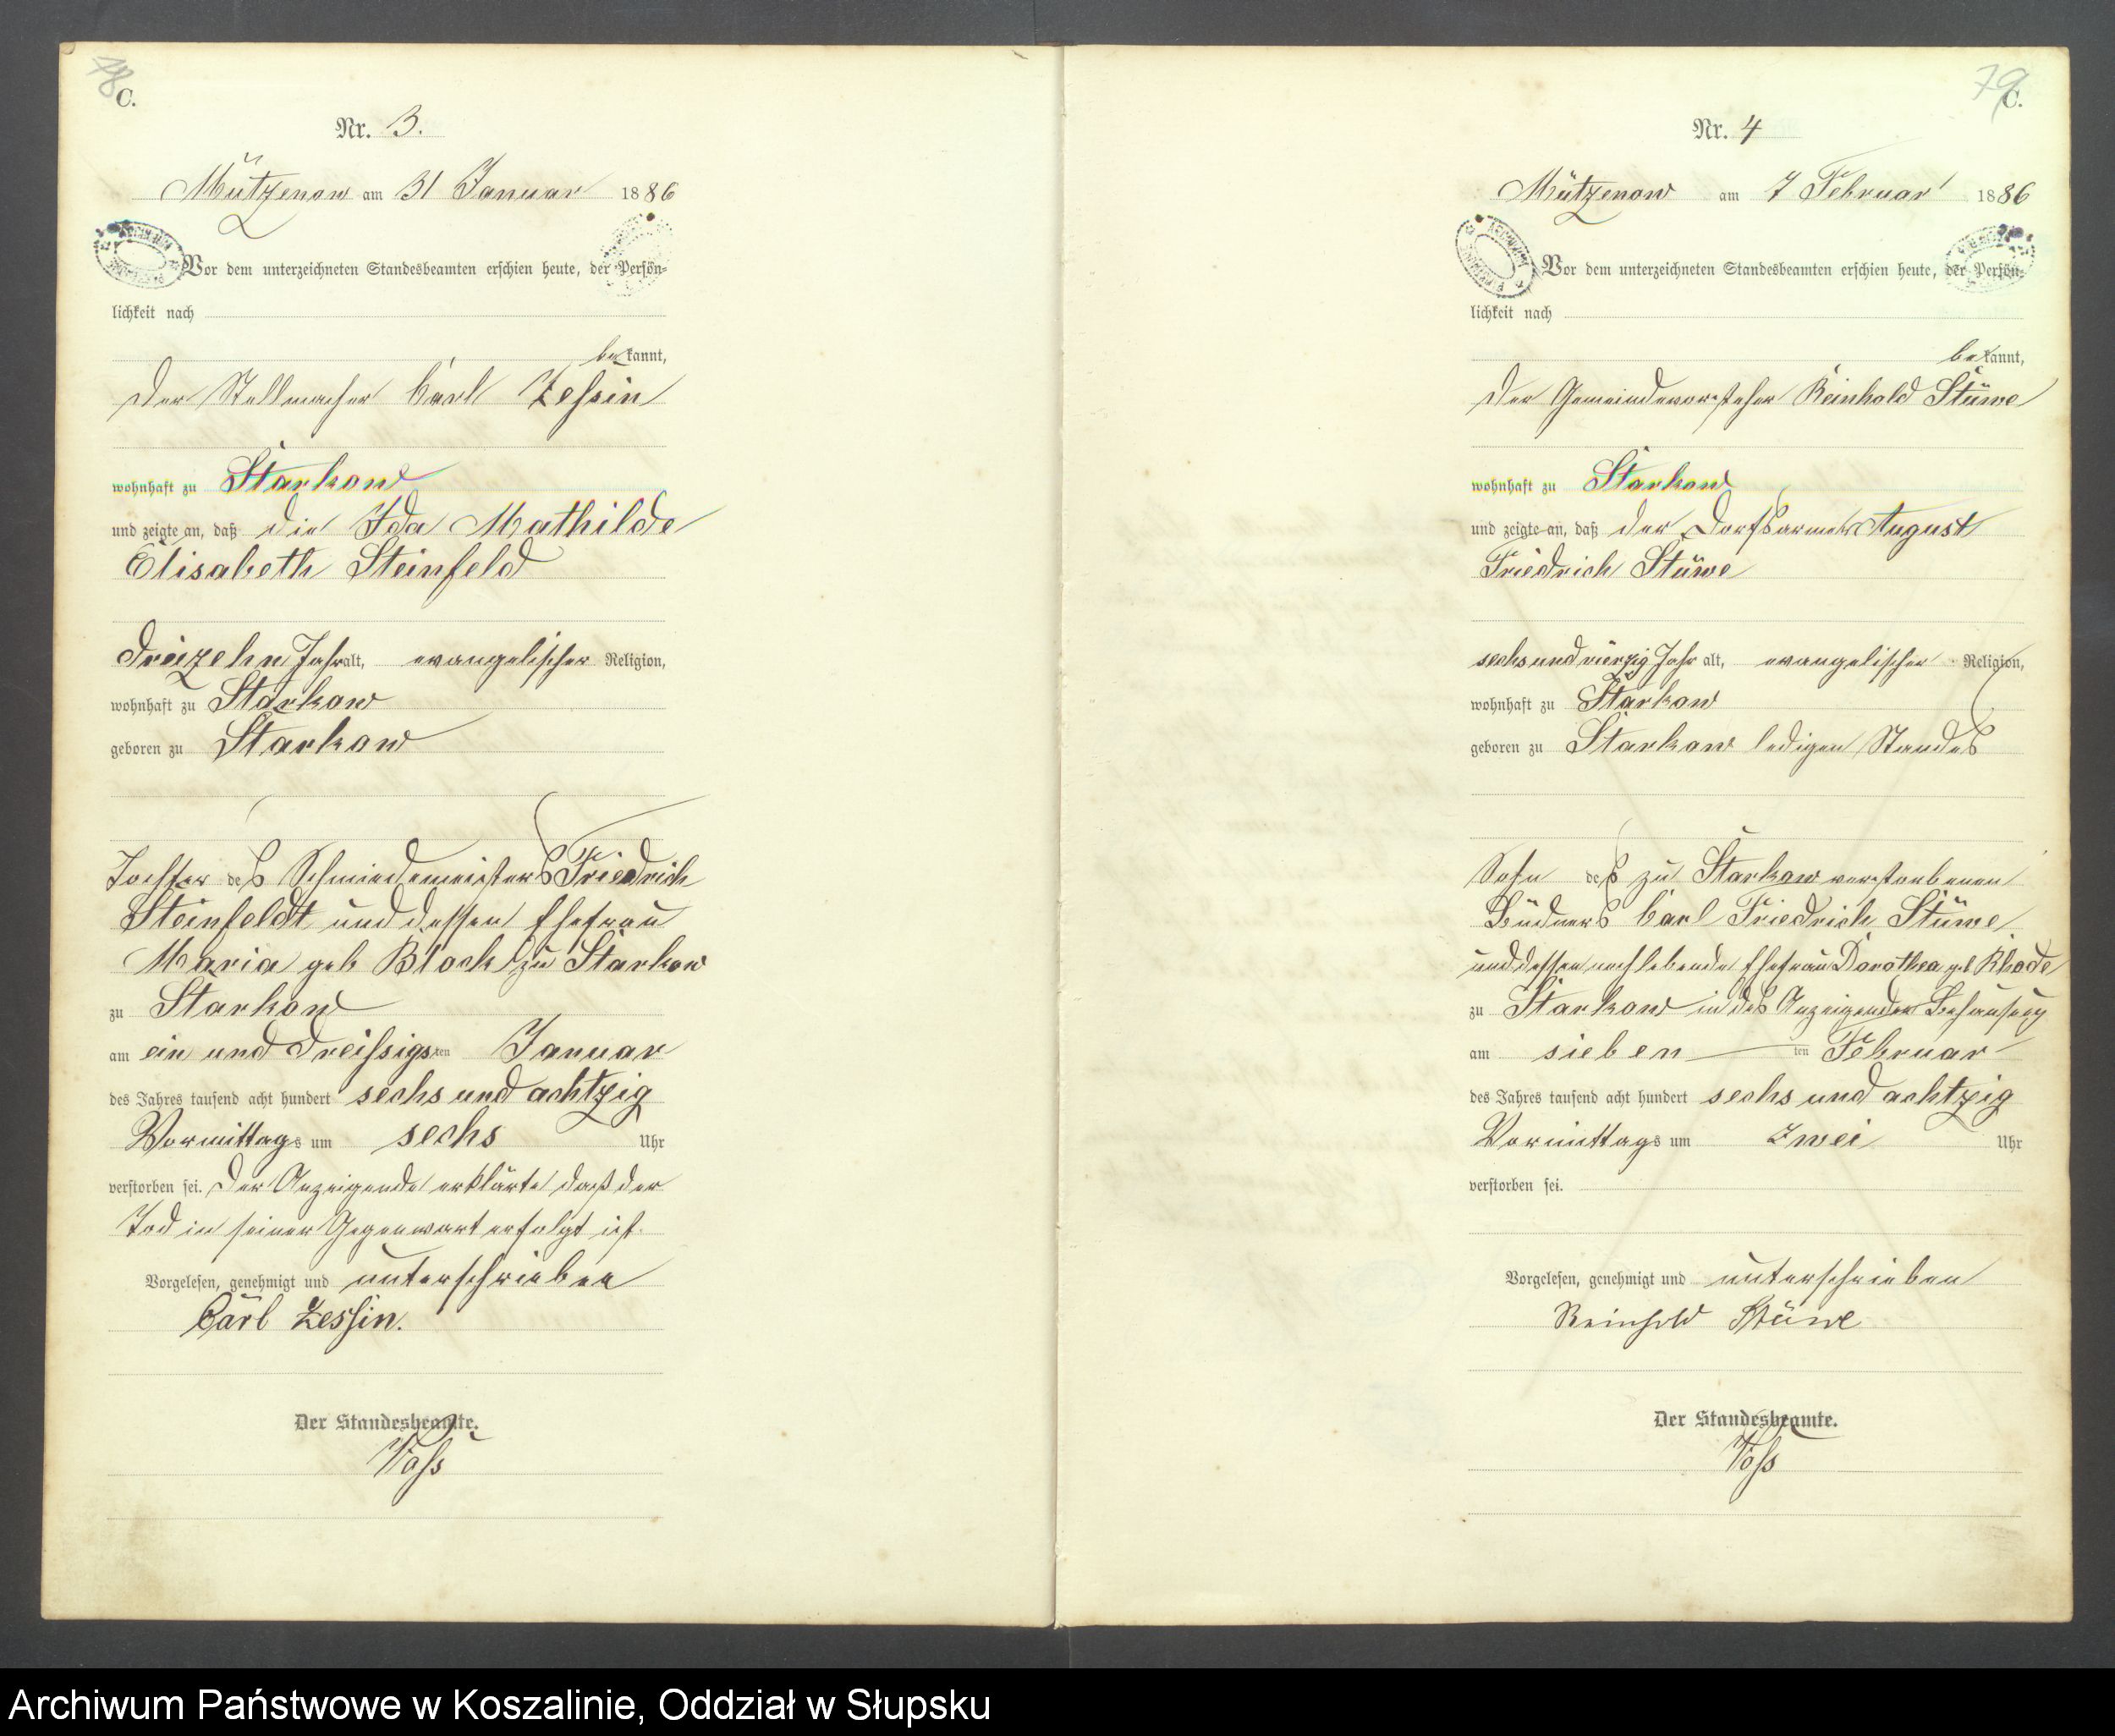 78
C.
Nr. 3.
Mützenow am 31 Januar 1886
Vor dem unterzeichneten Standesbeamten erschien heute, der Persön-
lichkeit nach
bekannt,
der Stellmacher Carl Zessin
wohnhaft zu Starkow
und zeigte an, daß die Ida Mathilde
Elisabeth Steinfeld
dreizehn Jahr alt, evangelischer Religion,
wohnhaft zu Starkow
geboren zu Starkow
Tochter des Schmiedemeisters Friedrich
Steinfeldt und dessen Ehefrau
Maria geb Block zu Starkow
zu Starkow
am ein und dreissigsten Januar
des Jahres tausend acht hundert sechs und achtzig
Vormittags um sechs Uhr
verstorben sei. Der Anzeigende erklärte daß der
Tod in seiner Gegenwart erfolgt ist.
Vorgelesen, genehmigt und unterschrieben
Carl Zessin.
Der Standesbeamte.
Voß
79
C.
Nr. 4
Mützenow am 7 Februar 1886
Vor dem unterzeichneten Standesbeamten erschien heute, der Persön-
lichkeit nach
bekannt,
der Gemeindevorsteher Reinhold Stüwe
wohnhaft zu Starkow
und zeigte an, daß der Dorfsarme August
Friedrich Stüwe
sechs und vierzig Jahr alt, evangelischer Religion,
wohnhaft zu Starkow
geboren zu Starkow ledigen Standes
Sohn des zu Starkow verstorbenen
Büdners Carl Friedrich Stüwe
und dessen noch lebende Ehefrau Dorothea geb Rhode
zu Starkow in des Anzeigenden Behausung
am sieben ten Februar
des Jahres tausend acht hundert sechs und achtzig
Vormittags um zwei Uhr
verstorben sei.
Vorgelesen, genehmigt und unterschrieben
Reinhold Stüwe
Der Standesbeamte.
Voß
Archiwum Państwowe w Koszalinie, Oddział w Słupsku